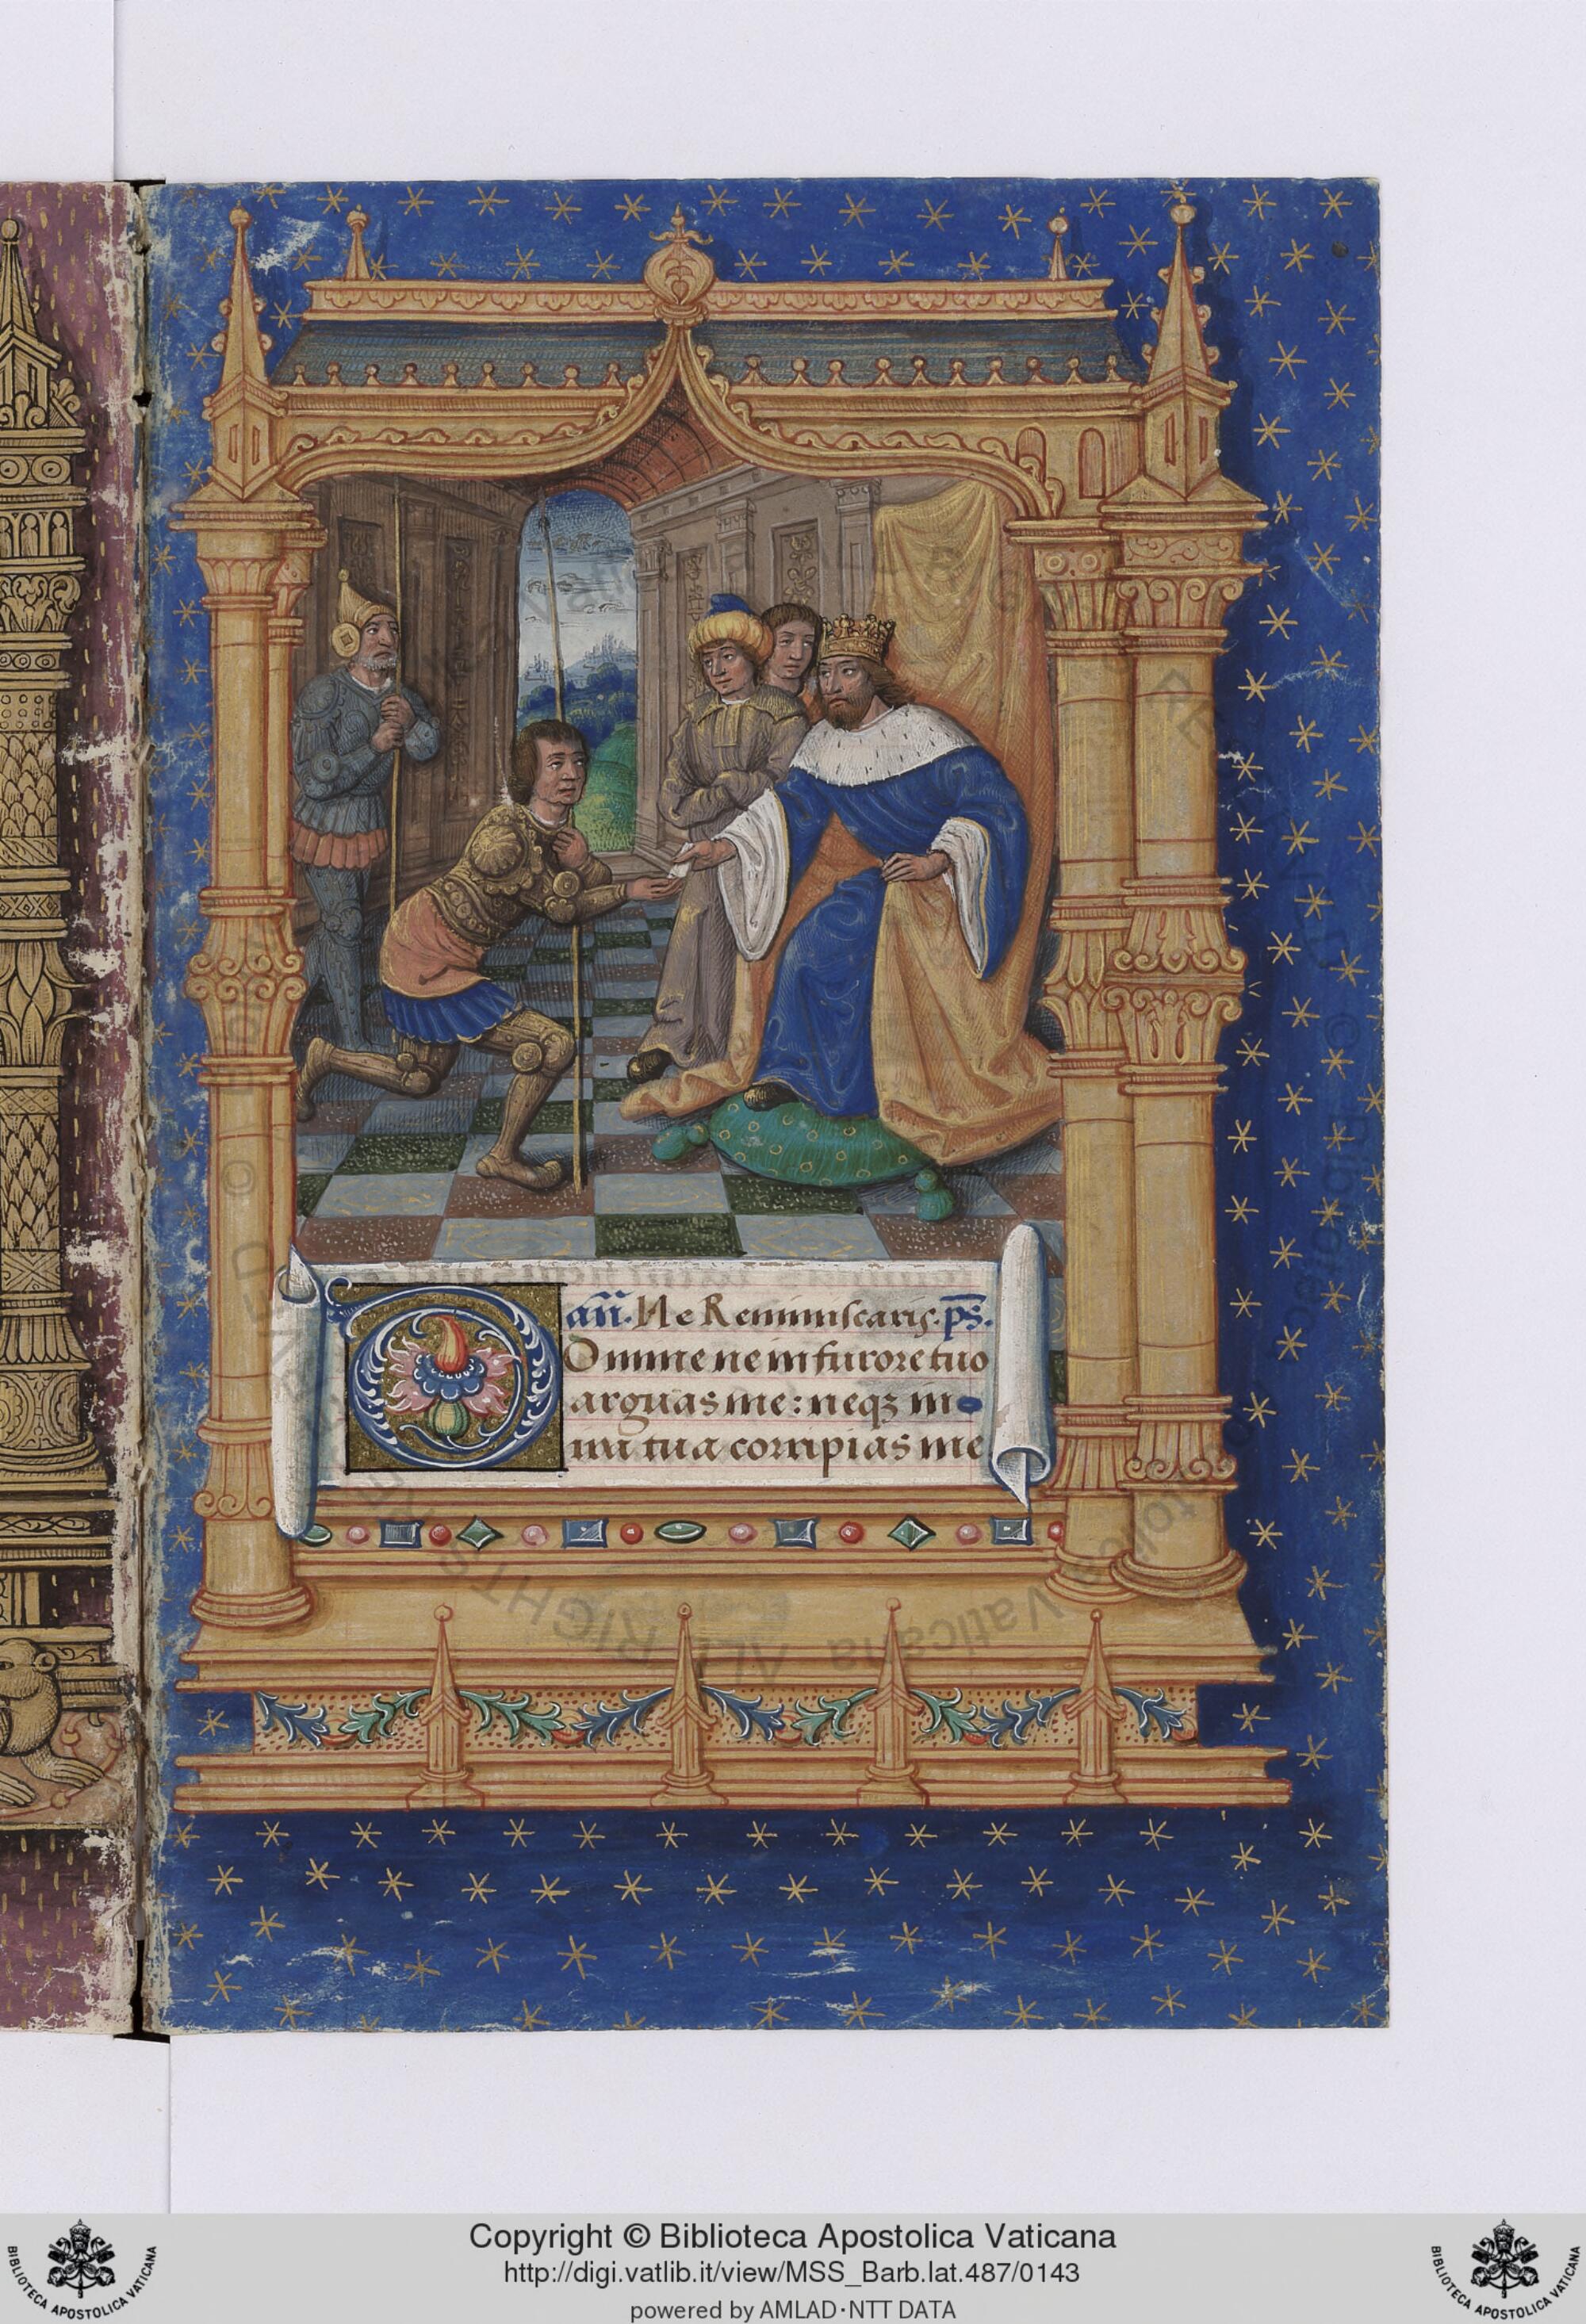 añ. Ne Reminiscaris. p̄s.
Domine ne in furore tuo
arguas me: neqꝫ in
ira tua corripias me
Copyright © Biblioteca Apostolica Vaticana
http://digi.vatlib.it/view/MSS_Barb.lat.487/0143
powered by AMLAD·NTT DATA
BIBLIOTECA APOSTOLICA VATICANA
BIBLIOTECA APOSTOLICA VATICANA